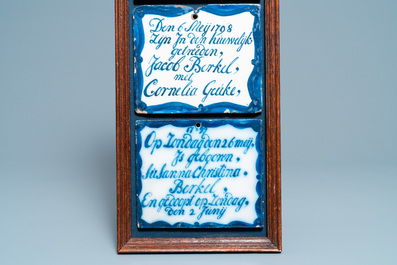 Den 6 Meij 1708
Zijn In den huuwelijk
getreden,
Jacob Berkel,
met
Cornelia Geeke,
Op Zondag den 26 meij.
Is gebooren.
Susanna Christina.
Berkel.
En gedoopt op Zondag.
den 2 Junij